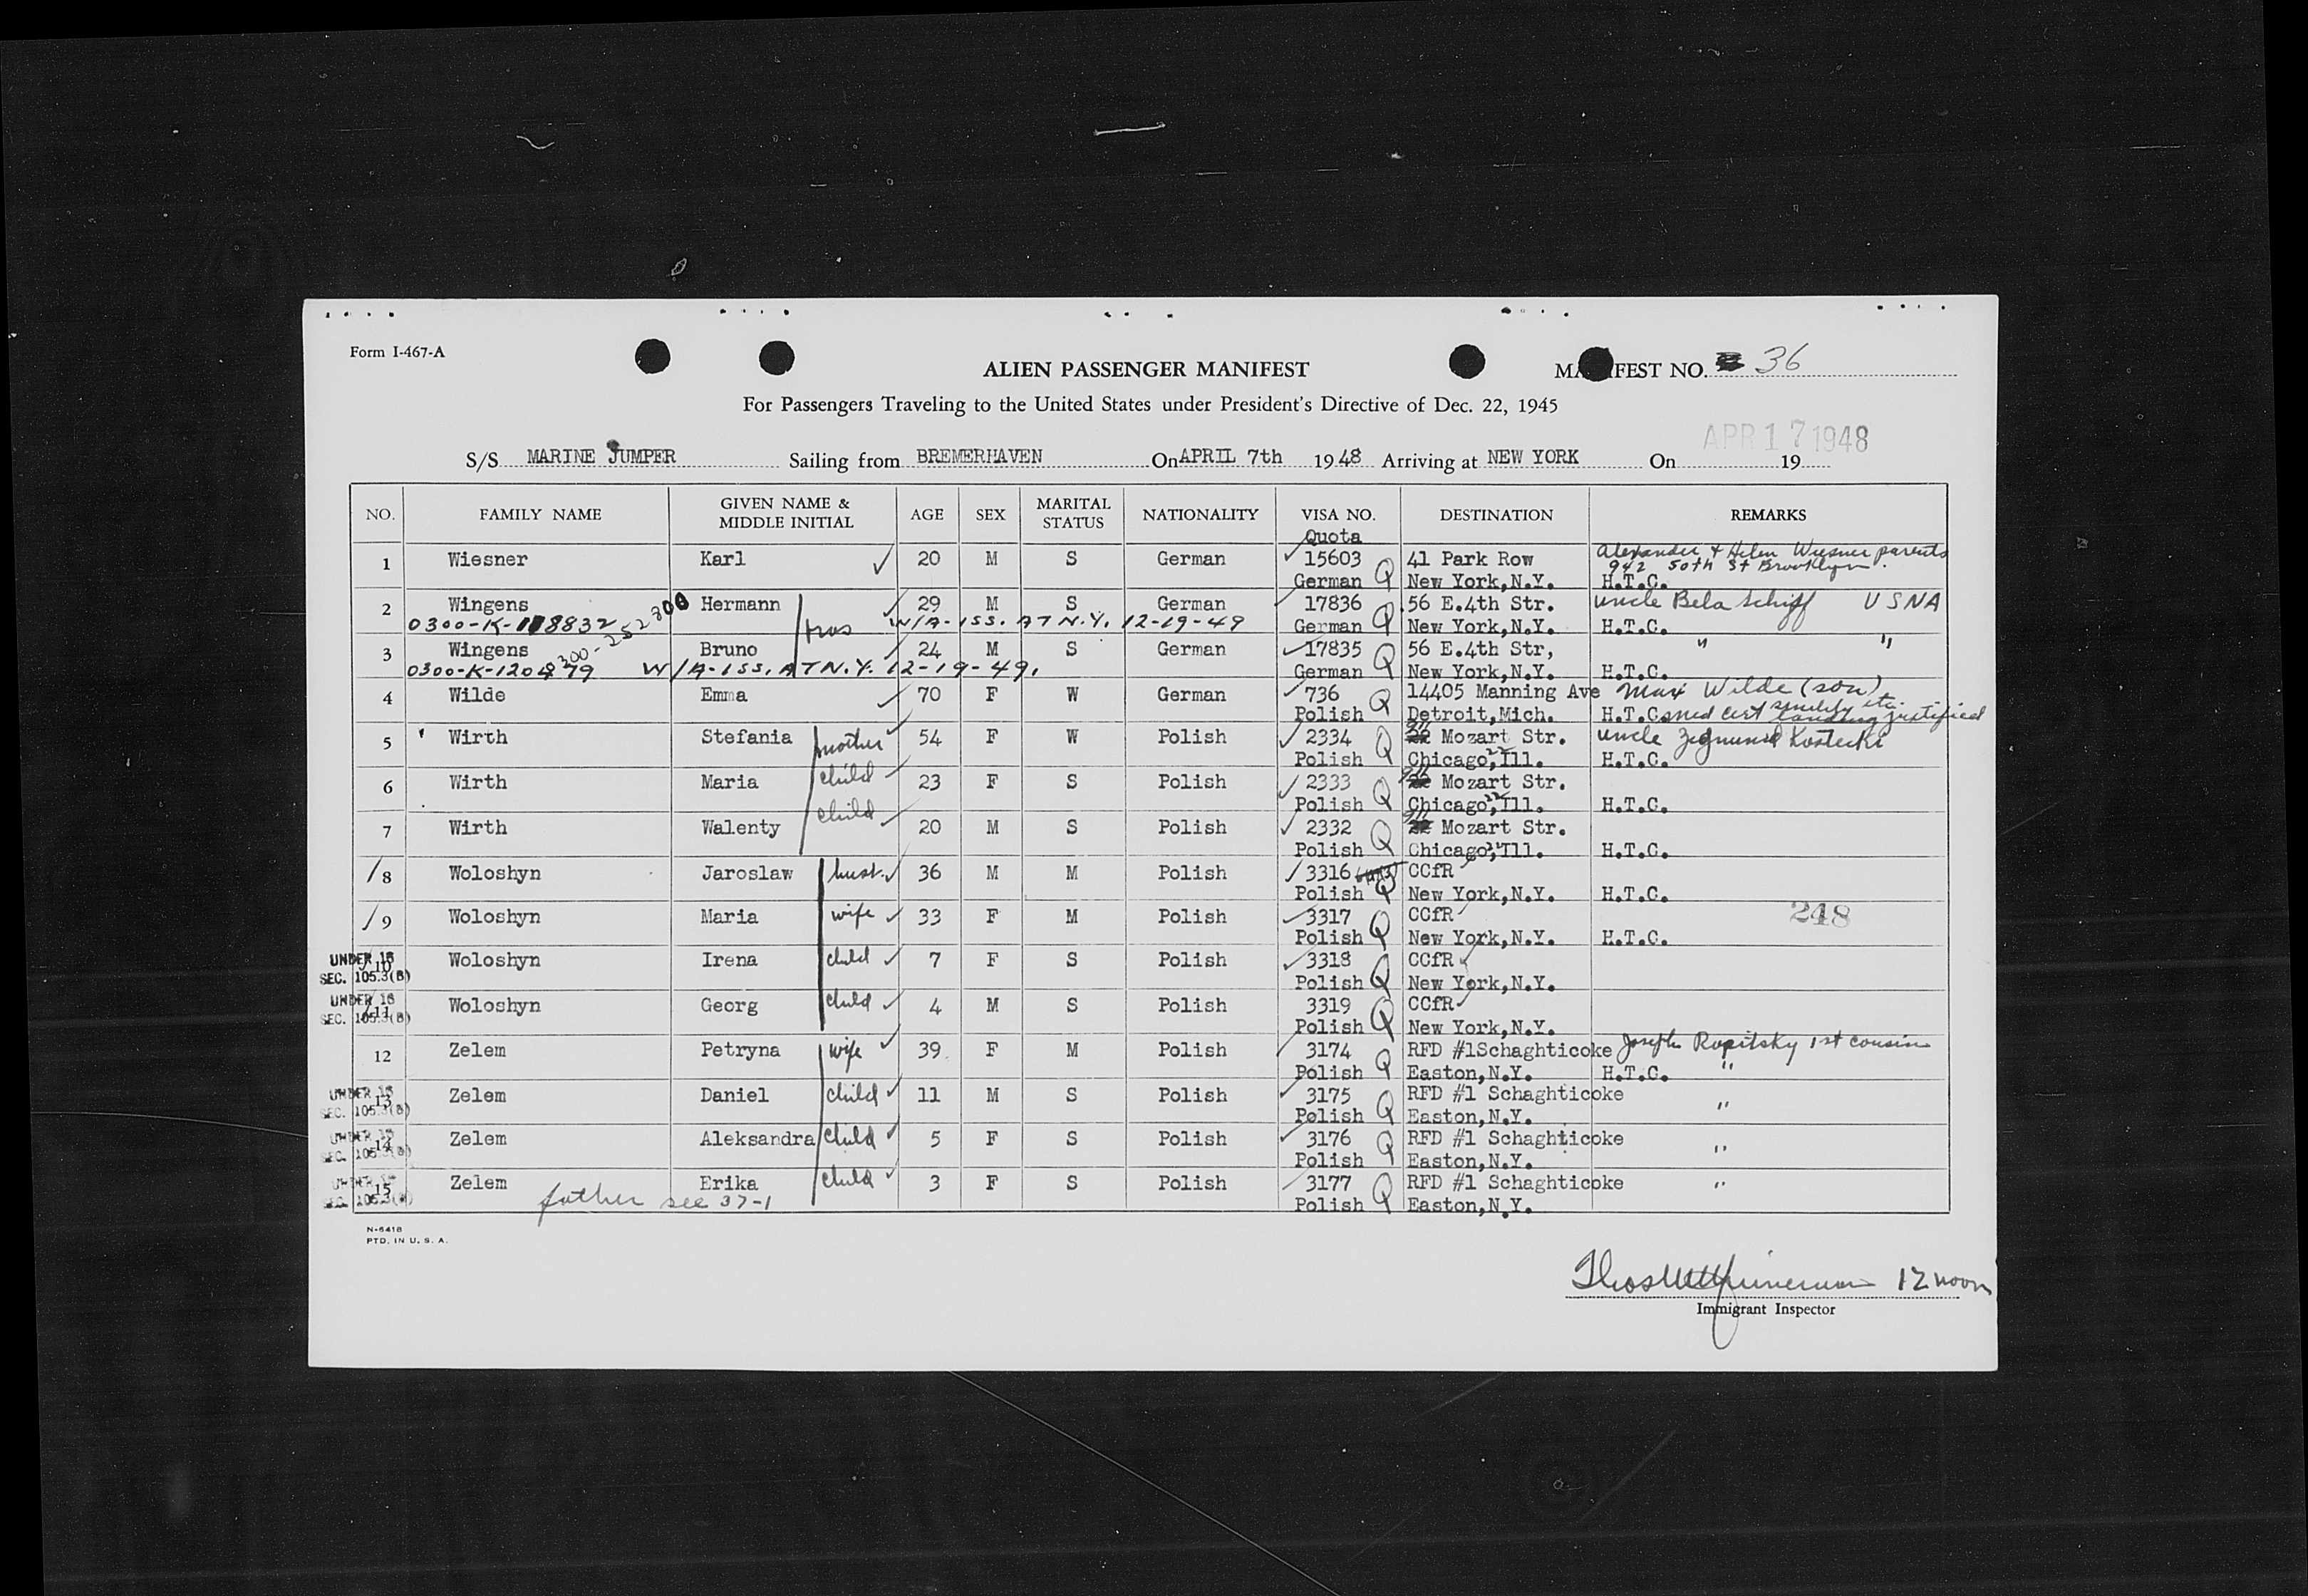 Form I-467-A
ALIEN PASSENGER MANIFEST
MA IFEST NO. 36
For Passengers Traveling to the United States under President's Directive of Dec. 22, 1945
APR 17 1948
S/S MARINE JUMPER Sailing from BREMERHAVEN On APRIL 7th 1948 Arriving at NEW YORK On 19
NO. FAMILY NAME GIVEN NAME & MIDDLE INITIAL AGE SEX MARITAL STATUS NATIONALITY VISA NO. DESTINATION REMARKS
Quota
1 Wiesner Karl ✓ 20 M S German ✓ 15603 41 Park Row Alexander & Helen Wiesner parents
942 50th St Brooklyn.
German Q New York,N.Y. H.T.C.
2 Wingens Hermann ✓ 29 M S German 17836 56 E.4th Str. uncle Bela Schiff USNA
W/A-ISS. AT N.Y. 12-19-49 German Q New York,N.Y. H.T.C.
3 Wingens Bruno ✓ 24 M S German ✓ 17835 56 E.4th Str, " "
W/A-ISS. AT N.Y. 12-19-49. German Q New York,N.Y. H.T.C.
4 Wilde Emma ✓ 70 F W German ✓ 736 14405 Manning Ave Max Wilde (son)
Polish Q Detroit,Mich. H.T.C. med cert senility etc. landing justified
5 Wirth Stefania mother ✓ 54 F W Polish ✓ 2334 Mozart Str. uncle Zigmund Kostecki
Polish Q Chicago,22 Ill. H.T.C.
6 Wirth Maria child ✓ 23 F S Polish ✓ 2333 Mozart Str.
Polish Q Chicago,22 Ill. H.T.C.
7 Wirth Walenty child ✓ 20 M S Polish ✓ 2332 Mozart Str.
Polish Q Chicago,22 Ill. H.T.C.
/8 Woloshyn Jaroslaw husb. ✓ 36 M M Polish ✓ 3316 CCfR
Polish Q New York,N.Y. H.T.C.
/9 Woloshyn Maria wife ✓ 33 F M Polish 3317 CCfR 248
Polish Q New York,N.Y. H.T.C.
UNDER 16 /10 Woloshyn Irena child ✓ 7 F S Polish ✓ 3318 CCfR
SEC. 105.3(B) Polish Q New York,N.Y.
UNDER 16 /11 Woloshyn Georg child ✓ 4 M S Polish 3319 CCfR
SEC. 105.3(B) Polish Q New York,N.Y.
12 Zelem Petryna wife ✓ 39 F M Polish 3174 RFD #1Schaghticoke Joseph Ropitsky 1st cousin
Polish Q Easton,N.Y. H.T.C. "
UNDER 16 13 Zelem Daniel child ✓ 11 M S Polish ✓ 3175 RFD #1 Schaghticoke
SEC. 105.3(B) Polish Q Easton,N.Y. "
UNDER 16 14 Zelem Aleksandra child ✓ 5 F S Polish ✓ 3176 RFD #1 Schaghticoke
SEC. 105.3(B) Polish Q Easton,N.Y. "
15 Zelem Erika child ✓ 3 F S Polish 3177 RFD #1 Schaghticoke "
SEC. 105.3(B) father see 37-1 Polish Q Easton,N.Y.
N-6418
PTD. IN U. S. A.
12 noon
Immigrant Inspector